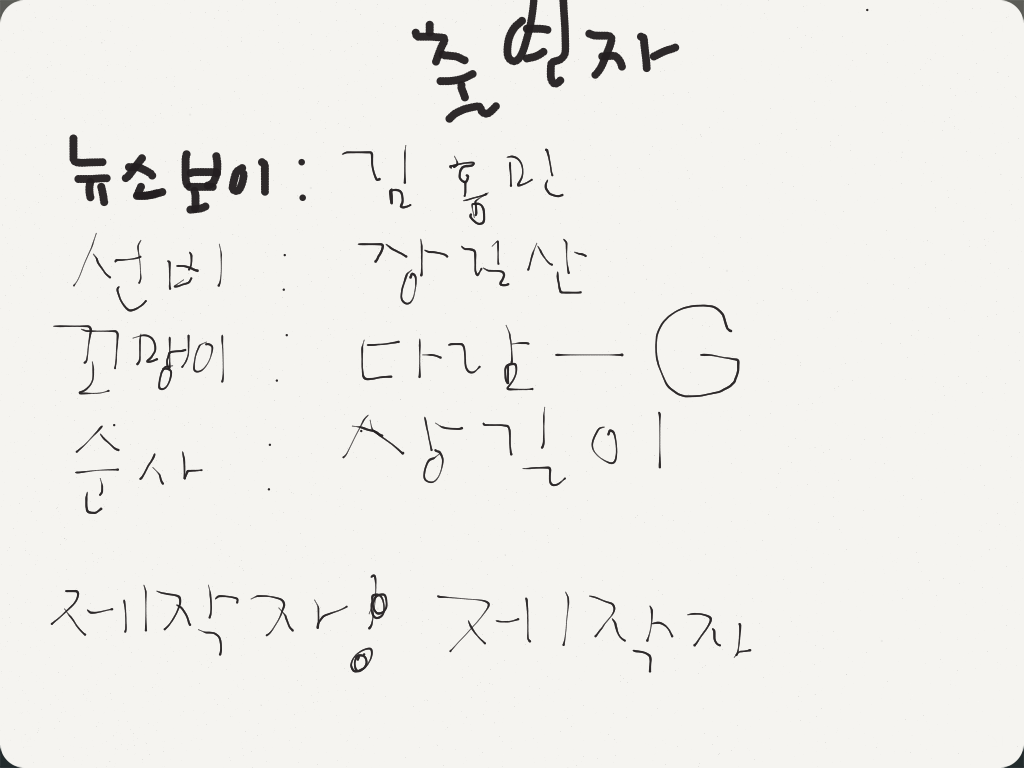 출연자
뉴스보이: 김홍민
선비 : 장길산
꼬맹이 : 다람-G
순사 : 상길이
제작자 제작자